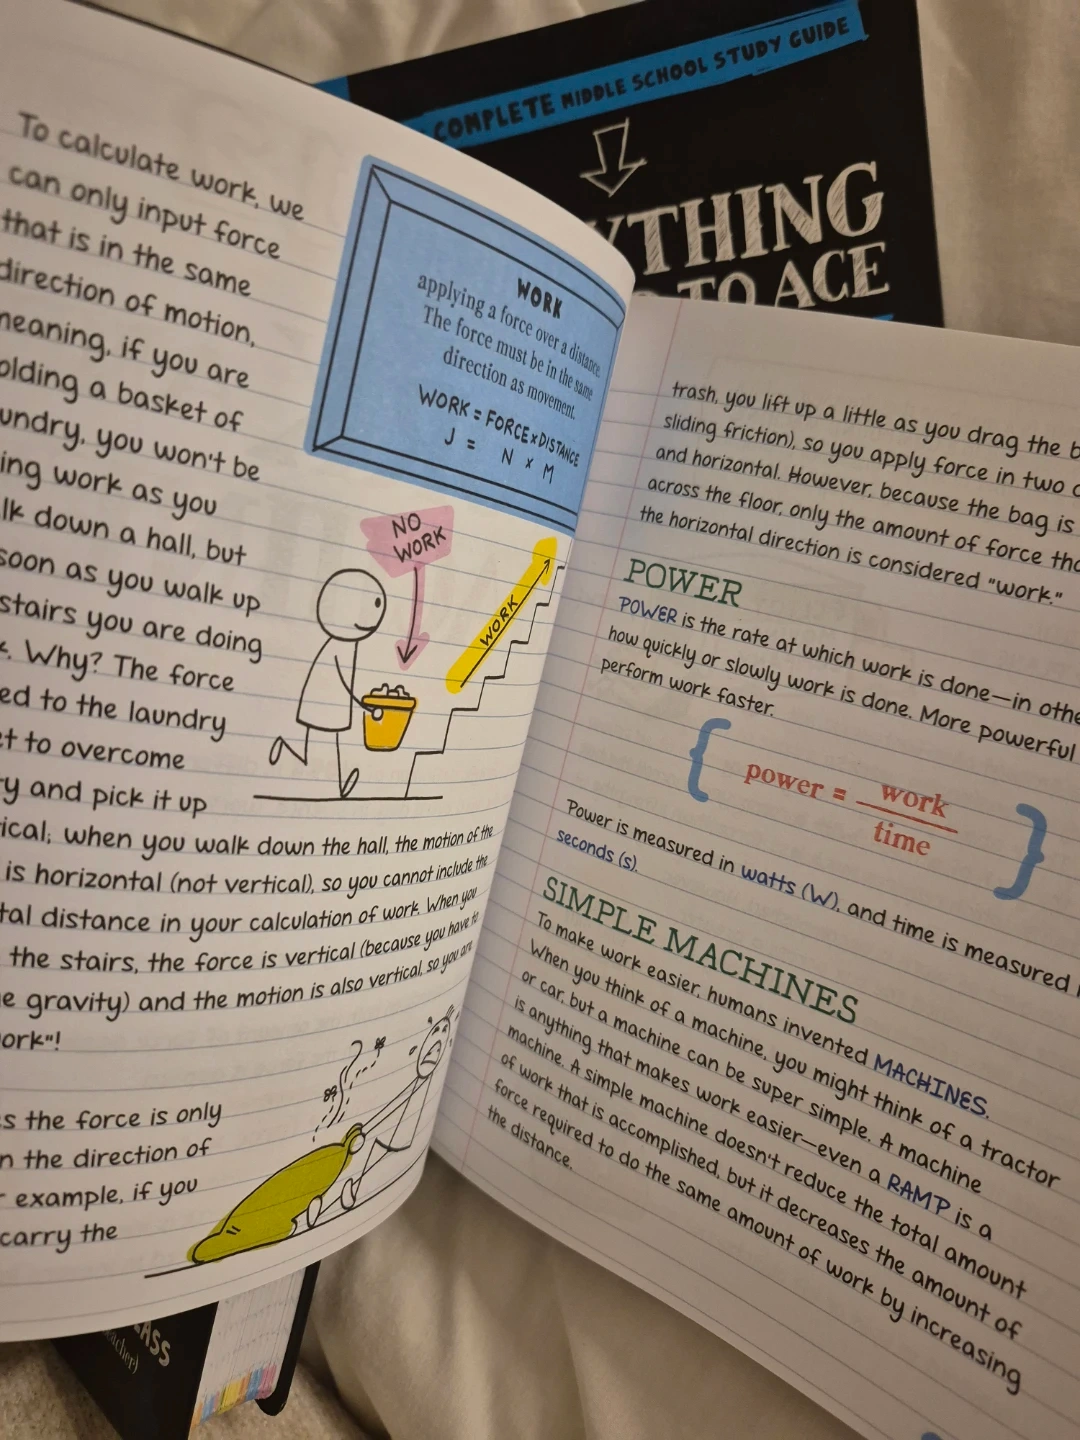 COMPLETE MIDDLE SCHOOL STUDY GUIDE
YTHING
TO ACE
To calculate work, we
can only input force
that is in the same
direction of motion,
meaning, if you are
olding a basket of
undry, you won't be
ing work as you
lk down a hall, but
soon as you walk up
stairs you are doing
k. Why? The force
ed to the laundry
et to overcome
ry and pick it up
ical; when you walk down the hall, the motion of the
is horizontal (not vertical), so you cannot include the
tal distance in your calculation of work. When you
the stairs, the force is vertical (because you have to
e gravity) and the motion is also vertical, so you are
ork"!
s the force is only
n the direction of
r example, if you
carry the
WORK
applying a force over a distance.
The force must be in the same
direction as movement.
WORK = FORCE x DISTANCE
J = N x M
NO
WORK
WORK
trash, you lift up a little as you drag the b
sliding friction), so you apply force in two
and horizontal. However, because the bag is
across the floor, only the amount of force tha
the horizontal direction is considered "work."
POWER
POWER is the rate at which work is done—in othe
how quickly or slowly work is done. More powerful
perform work faster.
power = work
time
Power is measured in watts (W), and time is measured
seconds (s).
SIMPLE MACHINES
To make work easier, humans invented MACHINES.
When you think of a machine, you might think of a tractor
or car, but a machine can be super simple. A machine
is anything that makes work easier—even a RAMP is a
machine. A simple machine doesn't reduce the total amount
of work that is accomplished, but it decreases the amount of
force required to do the same amount of work by increasing
the distance.
ASS
eacher)